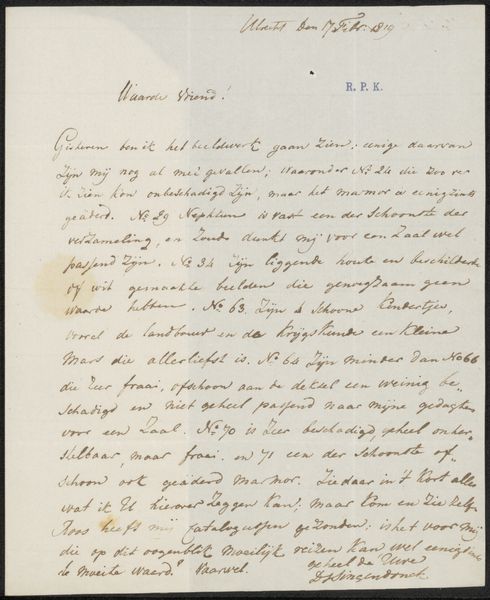 Utrecht den 17 Febr. 1819
R. P. K.
Waarde Vriend!
Gisteren ben ik het beeldwerk gaan zien: eenige daarvan
zijn mij nog al mee gevallen; waaronder No. 24 die zoo ver
ik zien kon onbeschadigd zijn, maar het marmor is eenigzints
geäderd. No. 29 Nephtun is vast een der schoonste der
verzameling, en zoude dunkt mij voor een Zaal wel
passend zijn. No. 34 zijn liggende houte en beschilderde
of wit gemaakte beelden die genoegzaam geen
waarde hebben. No. 63. zijn 4 schoone Kindertjes,
vooral de landbouw en de Krijgskunde een kleine
Mars die allerliefst is. No. 64 zijn minder dan No 66
die zeer fraai, ofschoon aan de deksel een weinig be-
schadigd en niet geheel passend naar mijne gedagten
voor een Zaal. No. 70 is zeer beschadigd, geheel onher-
stelbaar, maar fraai. en 71 een der schoonste of-
schoon ook geäderd marmor. Zie daar in 't kort alles
wat ik U hierover zeggen kan; maar kom en zie zelf.
Roos heeft mij catalogussen gezonden; is het voor mij
die op dit oogenblik moeilijk reizen kan wel eenigzints
de moeite waard? Vaarwel.
geheel de Uwe
D Singendonck